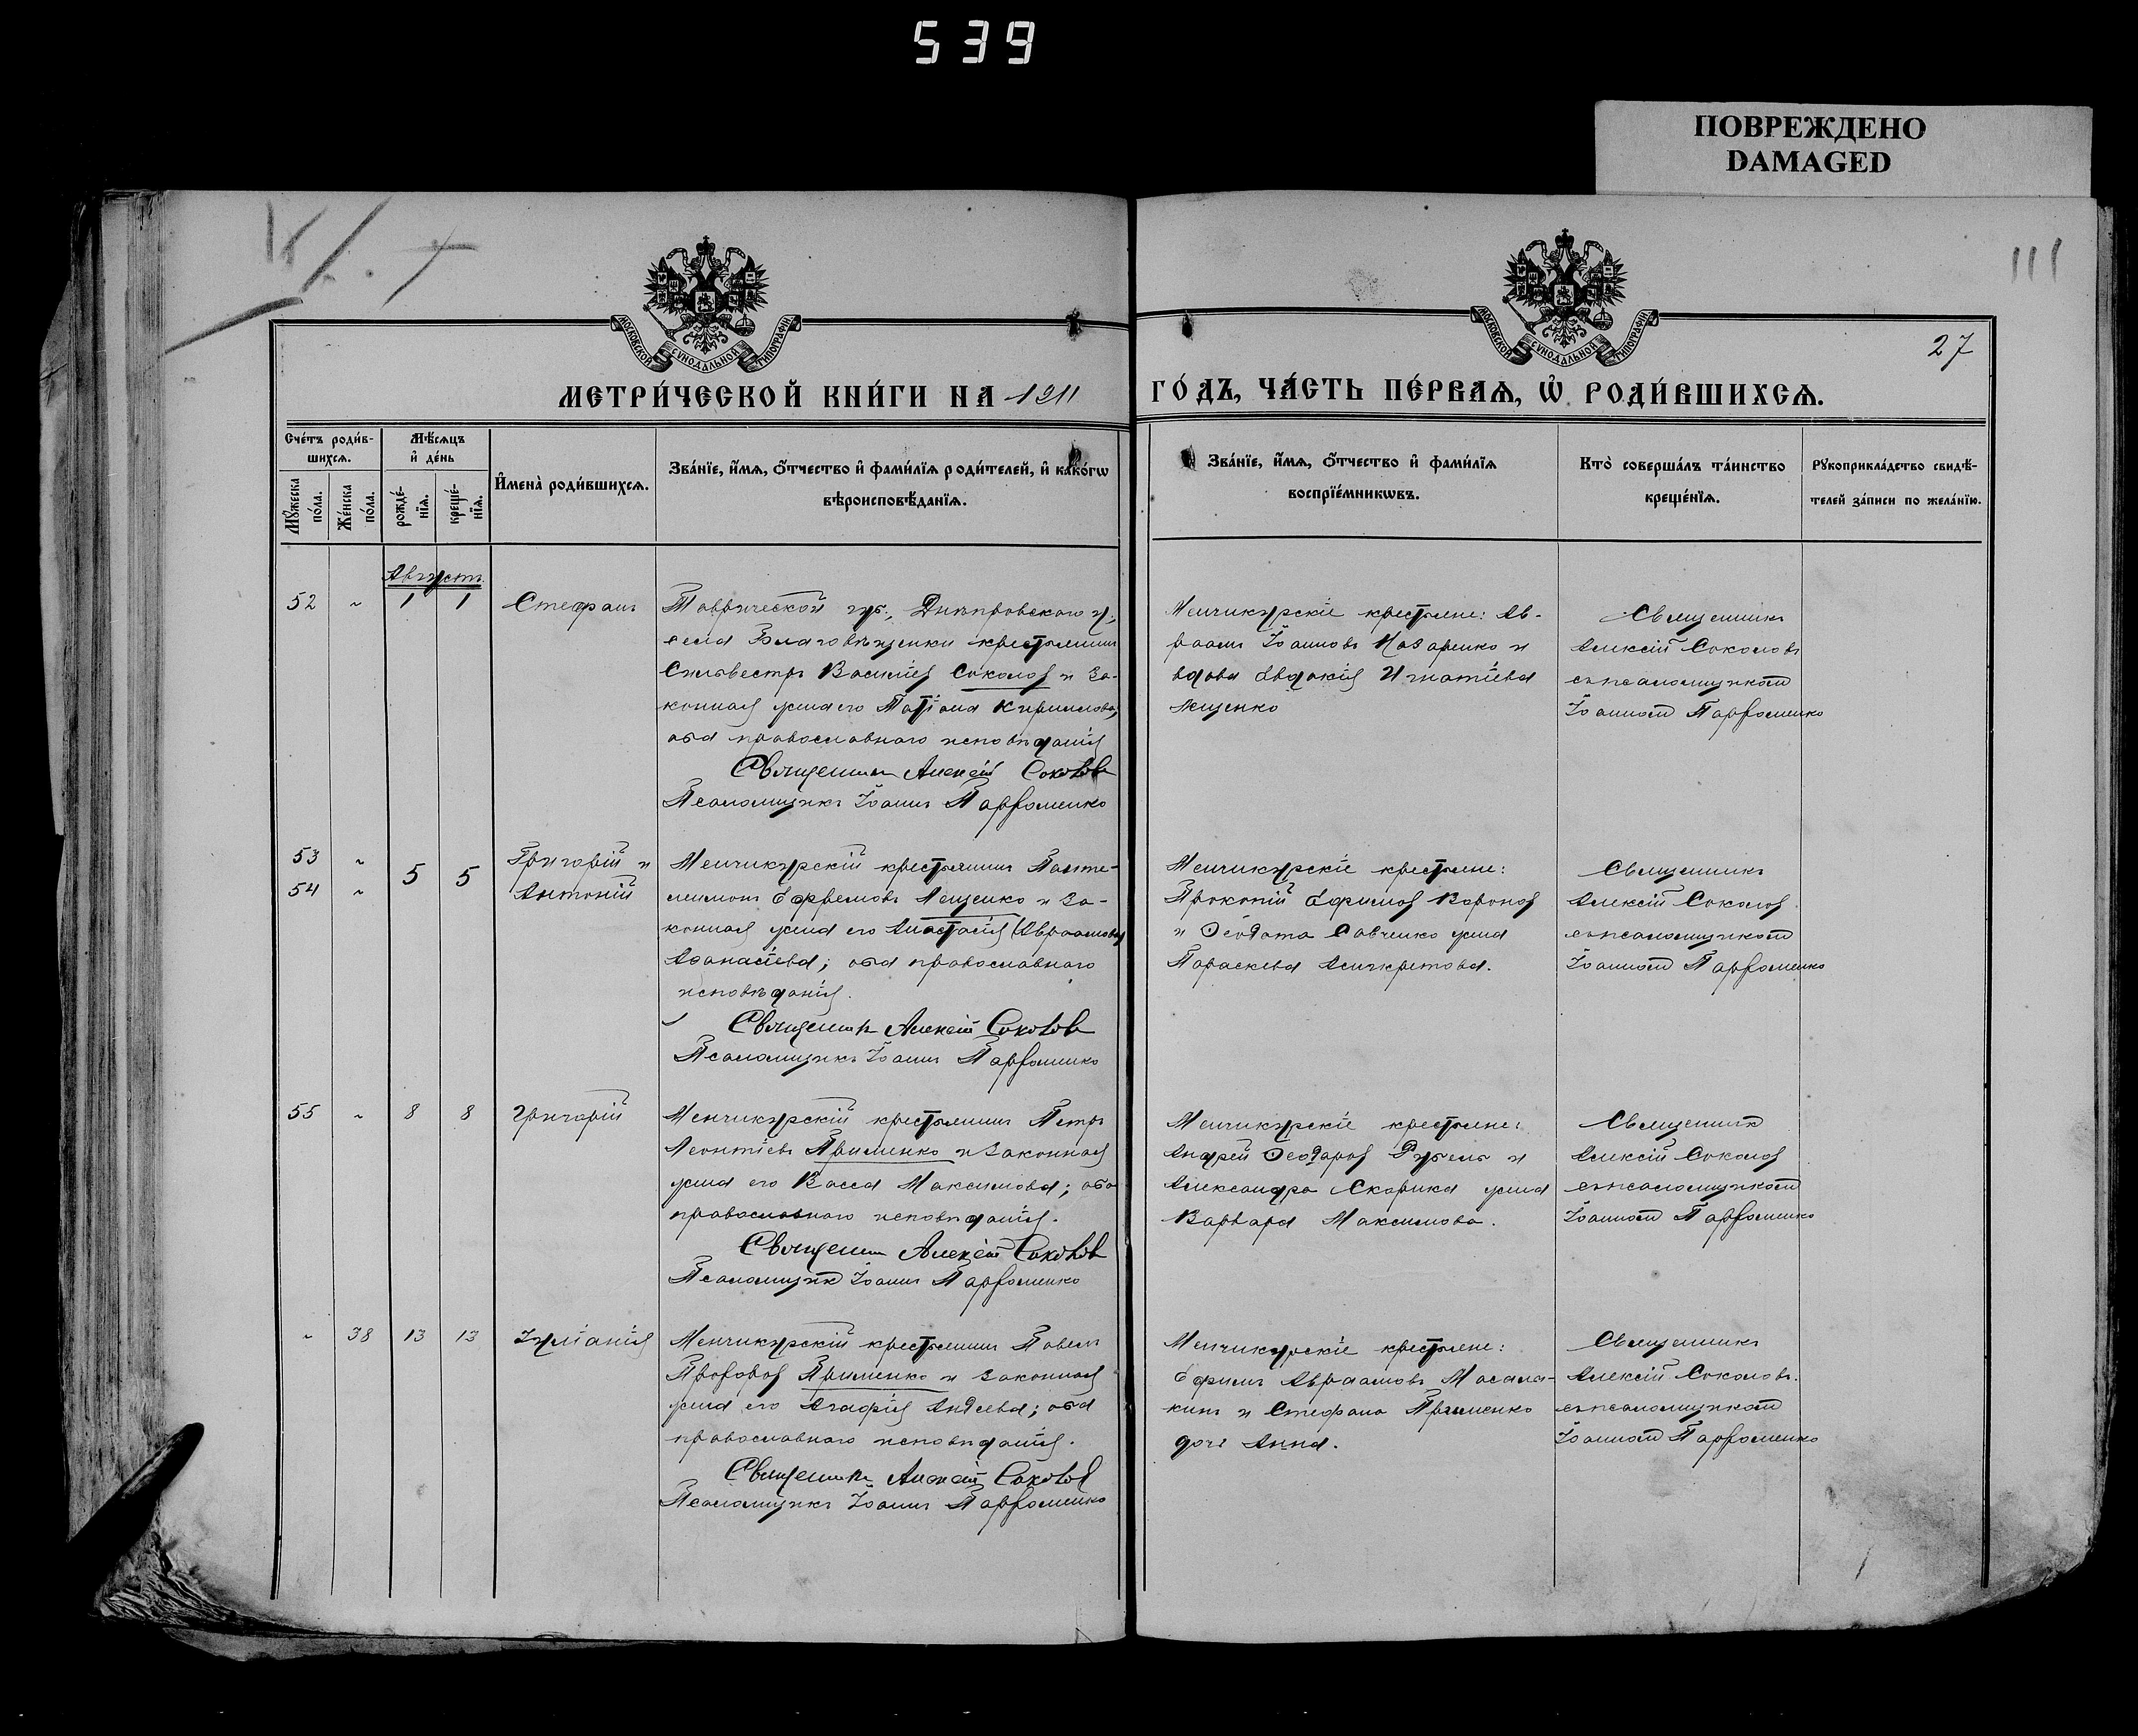 539
ПОВРЕЖДЕНО
DAMAGED
111
27
МОСКОВСКОЙ СУНОДАЛЬНОЙ ТИПОГРАФІИ
МОСКОВСКОЙ СУНОДАЛЬНОЙ ТИПОГРАФІИ
МЕТРИ́ЧЕСКОЙ КНИ́ГИ НА 1911
ГО́ДЪ, ЧА́СТЬ ПЕ́РВАѦ, Ѡ҆ РОДИ́ВШИХСѦ.
Сче́тъ роди́в-
шихсѧ.
Мѣ́сѧцъ
и҆ де́нь
Мꙋ́жеска
по́ла.
Же́нска
по́ла.
рожде́-
нїѧ.
креще́-
нїѧ.
И҆мена̀ роди́вшихсѧ.
Зва́нїе, и҆́мѧ, ѻ҆́тчество и҆ фами́лїѧ роди́телей, и҆ како́гѡ
вѣроисповѣ́данїѧ.
Зва́нїе, и҆́мѧ, ѻ҆́тчество и҆ фами́лїѧ
воспрїе́мникѡвъ.
Кто̀ соверша́лъ та́инство
креще́нїѧ.
Рꙋкоприкла́дство свидѣ́-
телей за́писи по жела́нїю.
Августъ
52 ~ 1 1 Стефанъ
Таврической губ., Днѣпровского у,
села Благовѣщенки крестьянинъ
Сильвестръ Василіев Соколов и за-
конная жена его Татіана Кириллова,
оба православнаго исповѣданія
Священникъ Алексій Соколов
Псаломщикъ Іоаннъ Парфоменко
Менчикурскіе крестьяне: Ав-
раамъ Іоанновъ Назаренко и
вдова Евдокія Игнатіева
Лещенко
Священникъ
Алексій Соколовъ
съ псаломщикомъ
Іоанномъ Парфоменко
53 ~
54 ~
5 5
Григорій и
Антоній
Менчикурскій крестьянинъ Панте-
леимонъ Ефремовъ Лещенко и за-
конная жена его Анастасія (Авраамова)
Аѳанасіева; оба православнаго
исповѣданія.
Священникъ Алексій Соколов
Псаломщикъ Іоаннъ Парфоменко
Менчикурскіе крестьяне:
Прокопій Ефимов Воронов
и Ѳеодота Савченко жена
Параскева Асигкритова.
Священникъ
Алексій Соколов
съ псаломщикомъ
Іоанномъ Парфоменко
55 ~ 8 8 Григорій
Менчикурскій крестьянинъ Петръ
Леонтіевъ Яременко и законная
жена его Васса Максимова; оба
православнаго исповѣданія.
Священникъ Алексій Соколов
Псаломщикъ Іоаннъ Парфоменко
Менчикурскіе крестьяне:
Андрей Ѳеодоров Рубель и
Александра Скорика жена
Варвара Максимова.
Священникъ
Алексій Соколов
съ псаломщикомъ
Іоанномъ Парфоменко
~ 38 13 13 Іуліанія
Менчикурскій крестьянинъ Павелъ
Прохоров Яременко и законная
жена его Агафія Андреева; оба
православнаго исповѣданія.
Священникъ Алексій Соколов
Псаломщикъ Іоаннъ Парфоменко
Менчикурскіе крестьяне:
Ефимъ Авраамовъ Масала-
кинъ и Стефана Яременко
дочь Анна.
Священникъ
Алексій Соколовъ.
съ псаломщикомъ
Іоанномъ Парфоменко